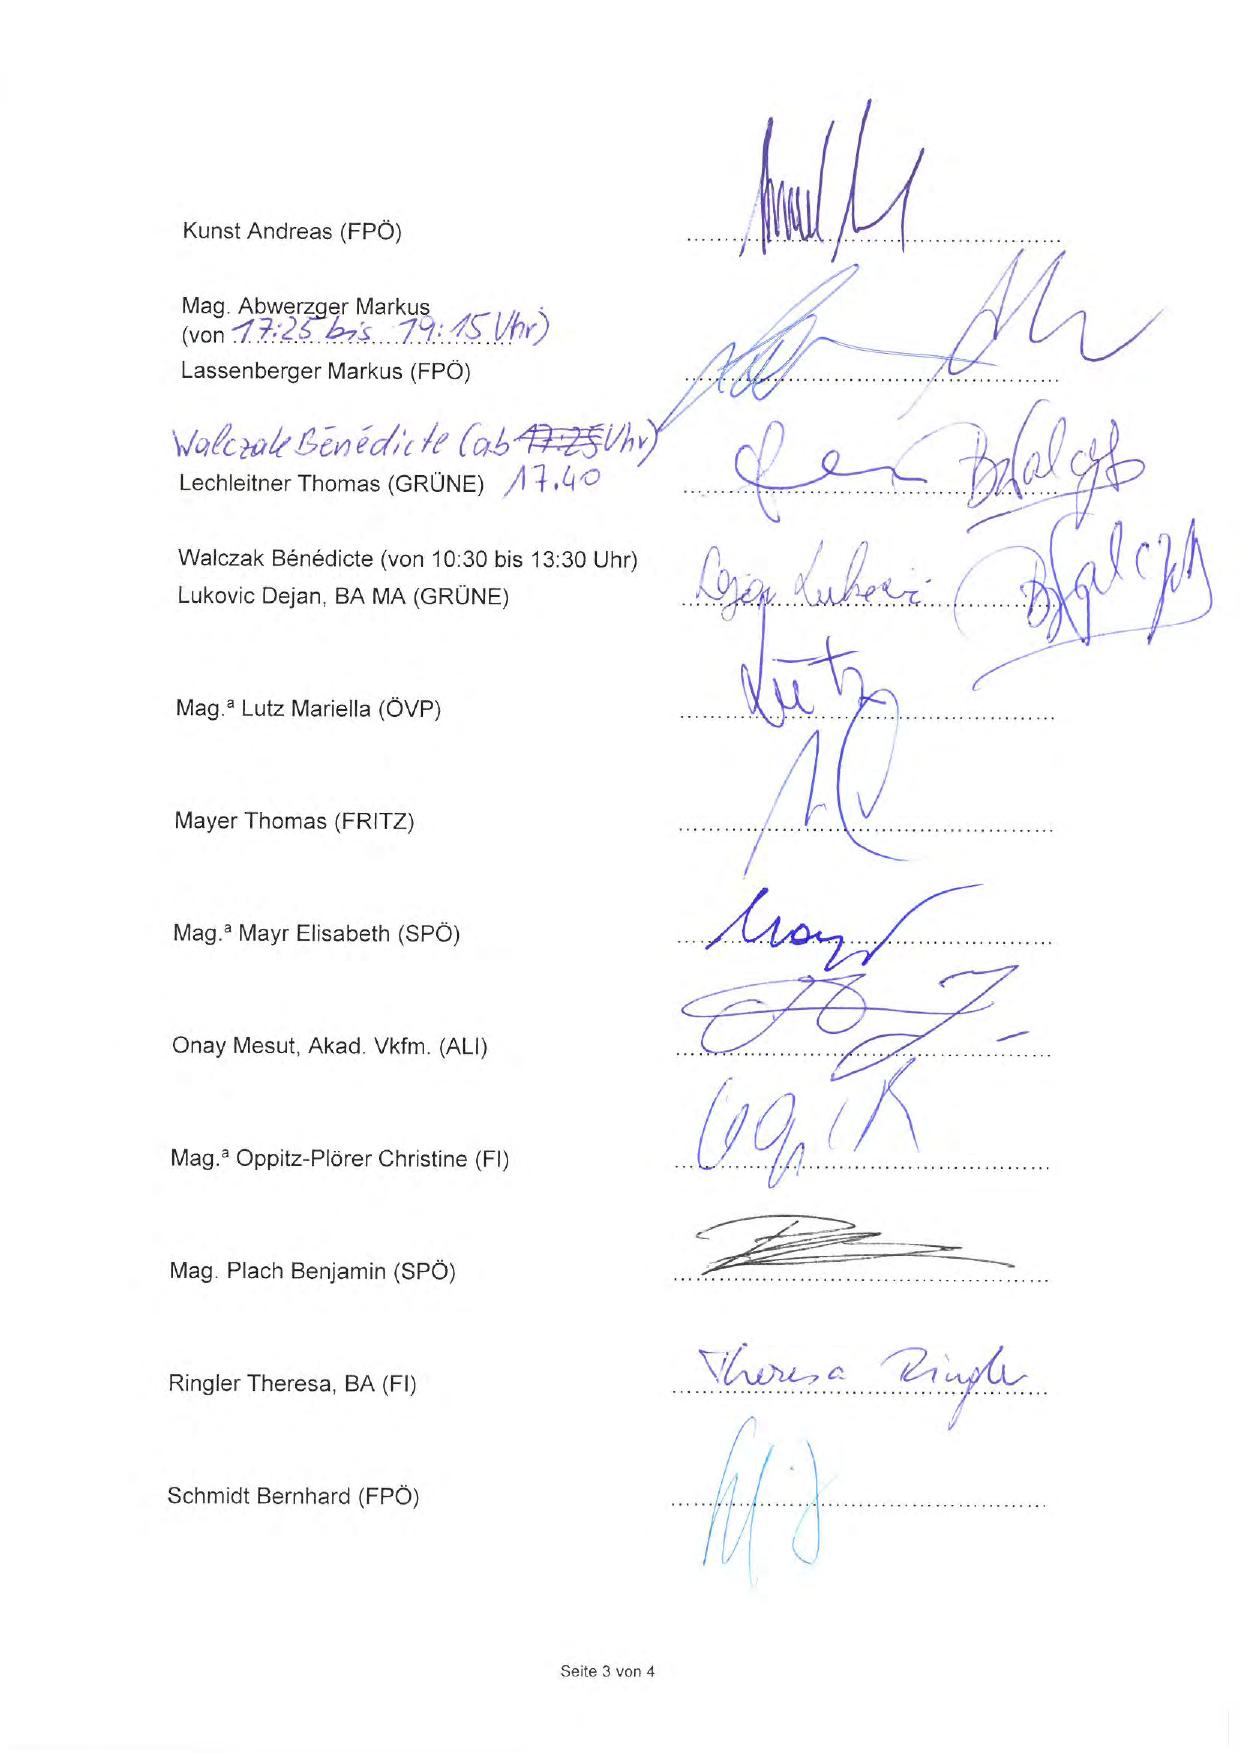 Kunst Andreas (FPÖ)
Mag. Abwerzger Markus
(von 17:25 bis 19:15 Uhr)
Lassenberger Markus (FPÖ)
Walczak Bénédicte (ab 17:25 Uhr)
Lechleitner Thomas (GRÜNE) 17.40
Walczak Bénédicte (von 10:30 bis 13:30 Uhr)
Lukovic Dejan, BA MA (GRÜNE)
Mag.ª Lutz Mariella (ÖVP)
Lutz
Mayer Thomas (FRITZ)
Mag.ª Mayr Elisabeth (SPÖ)
Mayr
Onay Mesut, Akad. Vkfm. (ALI)
Mag.ª Oppitz-Plörer Christine (FI)
Mag. Plach Benjamin (SPÖ)
Ringler Theresa, BA (FI) Theresa Ringler
Schmidt Bernhard (FPÖ)
Seite 3 von 4